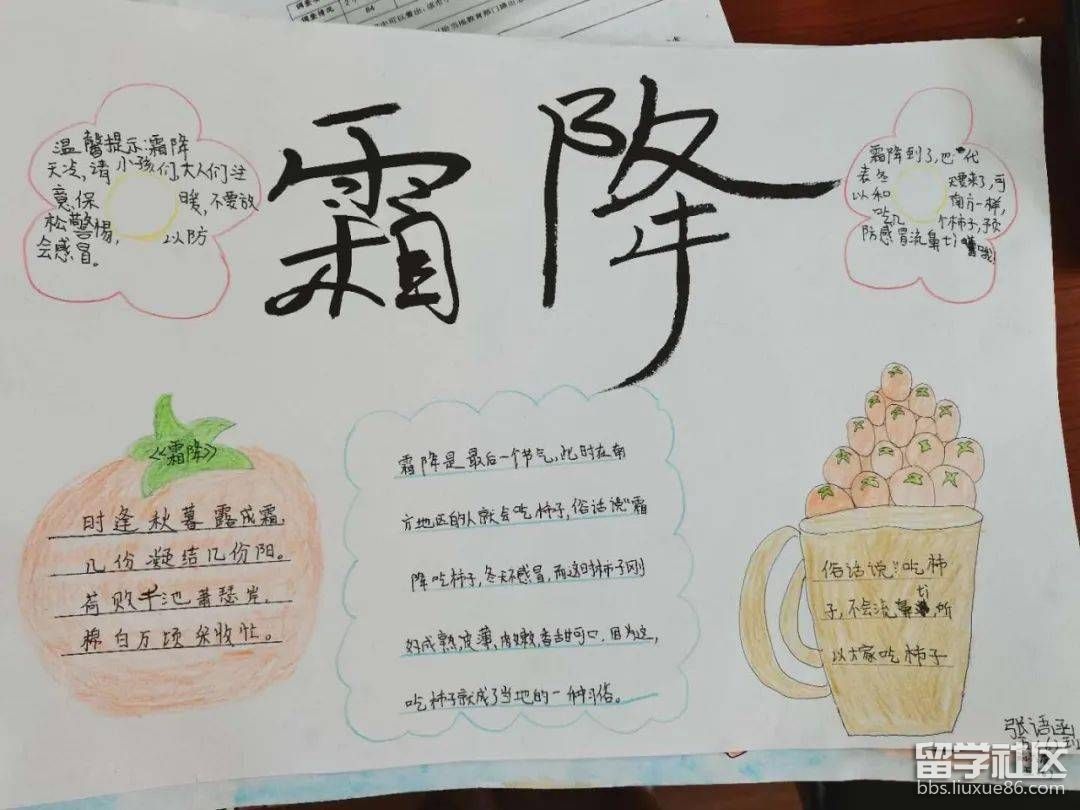 霜降
温馨提示霜降
天冷,请小孩们,大人们注
意保暖,不要放
松警惕,以防
会感冒。
霜降到了,也代
表冬天要来了,可
以和南方一样,
吃几个柿子,预
防感冒流鼻
《霜降》
时逢秋暮露成霜,
几份凝结几份阳。
荷败千池萧瑟岸,
棉白万顷采收忙。
霜降是最后一个节气,此时在南
方地区的人就会吃柿子,俗话说"霜
降吃柿子,冬天不感冒,而这时柿子刚
好成熟,皮薄,肉嫩,香甜可口,因为这,
吃柿子就成了当地的一种习俗。
俗话说:吃柿
子,不会流鼻,所
以大家吃柿子
张语函
留学社区
bbs.liuxue86.com